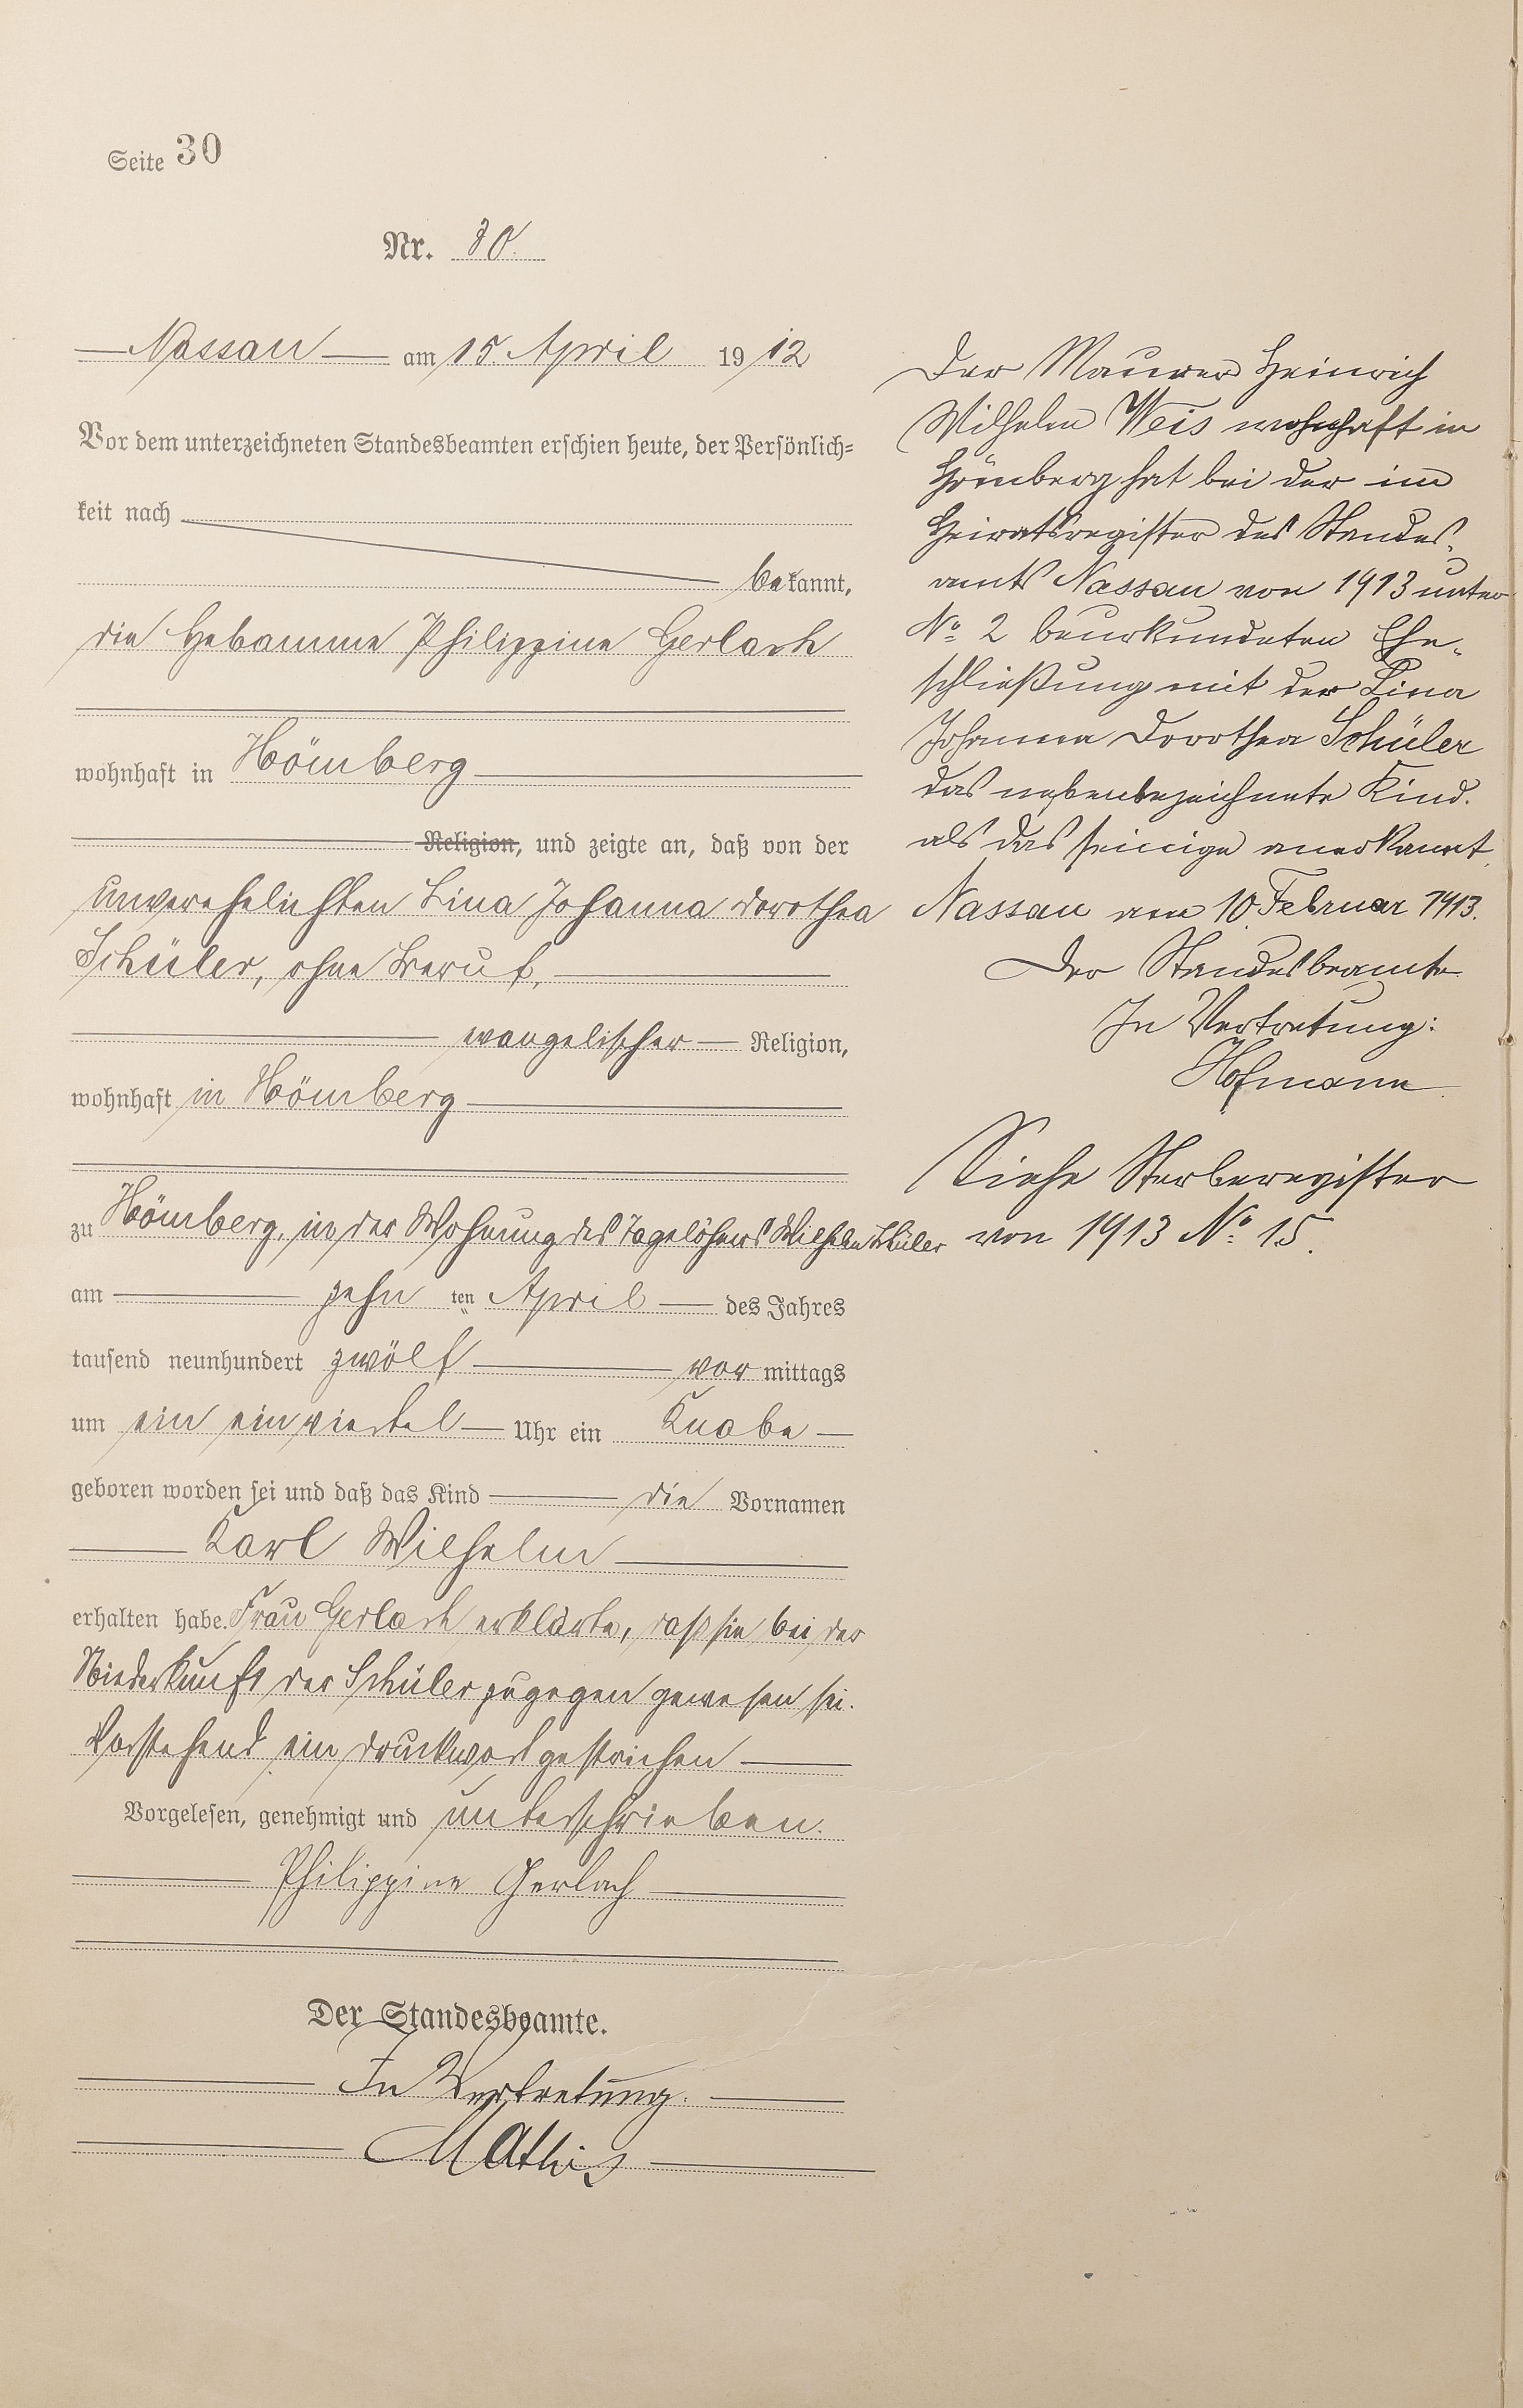 Seite 30
Nr. 30.
Nassau am 15. April 1912
Vor dem unterzeichneten Standesbeamten erschien heute, der Persönlich=
keit nach
bekannt,
die Hebamme Philippine Gerlach
wohnhaft in Hömberg
Religion, und zeigte an, daß von der
unverehelichten Lina Johanna Dorothea
Schüler, ohne Beruf,
evangelischer Religion,
wohnhaft in Hömberg
zu Hömberg, in der Wohnung des Tagelöhners Wilhelm Schüler
am zehn ten April des Jahres
tausend neunhundert zwölf vor mittags
um ein einviertel Uhr ein Knabe
geboren worden sei und daß das Kind die Vornamen
Karl Wilhelm
erhalten habe. Frau Gerlach erklärte, daß sie bei der
Niederkunft der Schüler zugegen gewesen sei.
Vorstehend ein Druckwort gestrichen
Vorgelesen, genehmigt und unterschrieben.
Philippine Gerlach
Der Standesbeamte.
In Vertretung.
Mathis
Der Maurer Heinrich
Wilhelm Weis wohnhaft in
Hömberg hat bei der im
Heiratsregister des Standes-
amts Nassau von 1913 unter
No 2 beurkundeten Ehe-
schließung mit der Lina
Johanna Dorothea Schüler
das nebenbezeichnete Kind.
als das seinige anerkannt.
Nassau am 10. Februar 1913.
Der Standesbeamte
In Vertretung:
Hofmann
Siehe Sterberegister
von 1913 No 15.